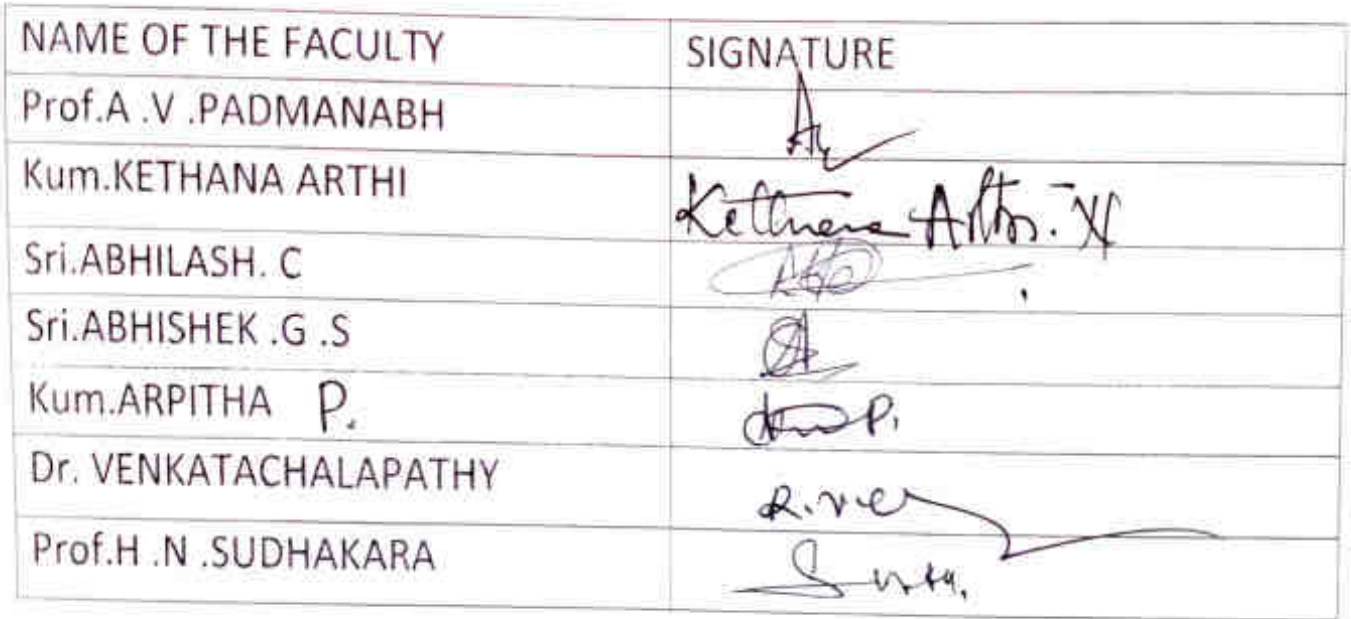 NAME OF THE FACULTY SIGNATURE
Prof.A .V .PADMANABH
Kum.KETHANA ARTHI Kethana Arthi. N
Sri.ABHILASH. C
Sri.ABHISHEK .G .S
Kum.ARPITHA P. P.
Dr. VENKATACHALAPATHY
Prof.H .N .SUDHAKARA